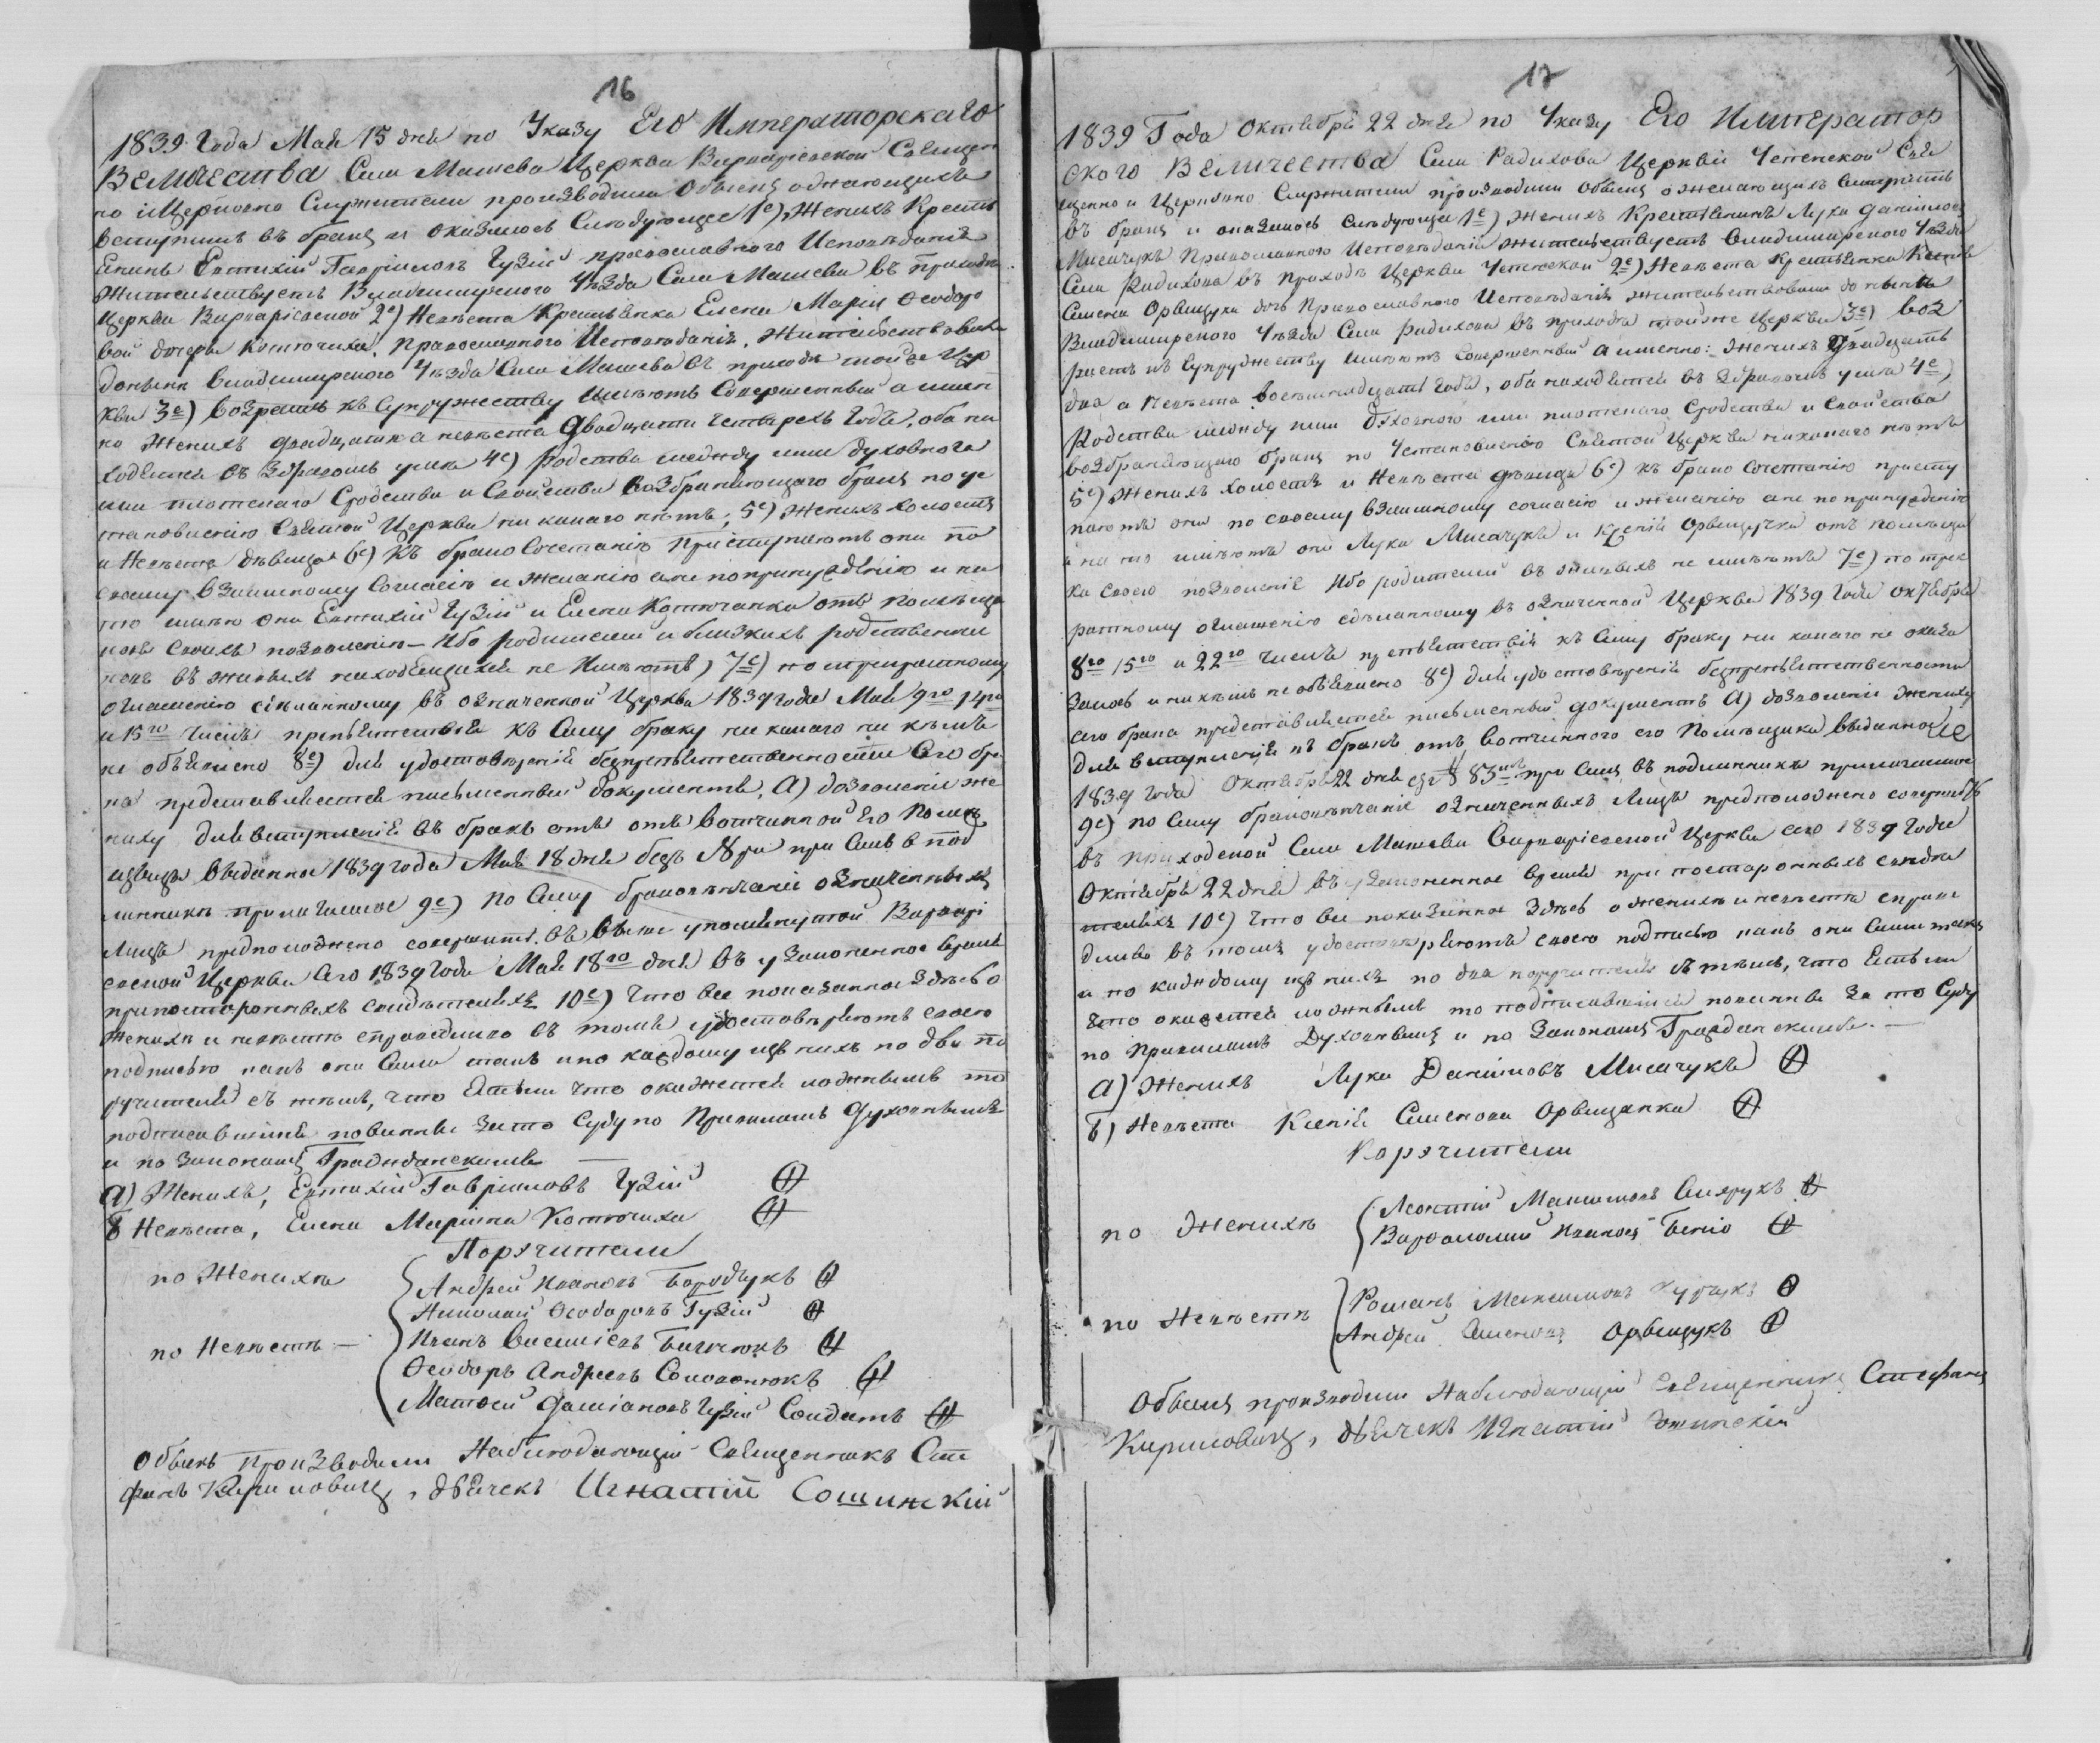 16
1839 Года Мая 15 дня по Указу Его Императорскаго
Величества Села Машева Церкви Варварiевской Священ
но и Церковно Служители производили Обыскъ о желающихъ
вступить въ бракъ и оказалось Следующее 1е) Женихъ Кресть
янинъ Евтихiй Гаврiиловъ Гузiй православного Исповѣданiя
Жительствуетъ Владимирского Уѣзда Села Машева въ приходѣ
Церкви Варварiевской 2е) Невѣста Крестьянка Елена Марiи Ѳеодоро
вой дочерь Котючиха, Православного Исповѣданiя, Жительствовала
доныне Владимирского Уѣзда Села Машева въ приходѣ той же Цер
кви 3е) Возрастъ къ Супружеству имѣютъ Совершенный а имен
но Женихъ двадцати а невѣста двадцати четырехъ годъ, оба на
ходятся въ здравомъ умѣ 4е) родства между ими духовного
или плотского Сродства и Свойства возбраняющого бракъ по ус
тановленiю Святой Церкви ни какого нѣтъ; 5е) Женихъ холостъ
и Невѣста дѣвица 6е) Къ брако Сочетанiю приступаютъ они по
своему взаимному Согласiю и желанiю а не по принужденiю и на
то имѣю они Евтихiй Гузiй и Елена Котючанка отъ помѣщи
ковъ своихъ позволенiе – Ибо родителей и близкихъ родственни
ковъ въ живыхъ находящихся не Имѣютъ) 7е) по троекратному
оглашенiю сдѣланному въ означенной Церкви 1839 года Мая 9го 14го
и 15го Числъ препятствiя къ Сему браку ни какого ни кѣмъ
не объявлено 8е) для удостовѣренiя безпрепятственности Сего бра
ка представляется письменный документъ, А) дозволенiе же
ниху для вступленiя въ бракъ отъ отъ вотчинной его Помѣ
щицы выданное 1839 года Мая 18 дня безъ Nра при Семъ в под
линникѣ прилагаемое 9е) по Сему браковѣнчанiе означенныхъ
Лицъ предположено совершить въ выше упомянутой Варварi
евской Церкви Сего 1839 Года Мая 18го дня въ узаконенное время
при посторонныхъ свидѣтеляхъ 10е) Что все показанное здѣсь о
женихѣ и невѣстѣ справедливо въ томъ удостовѣряютъ своею
подписью какъ они Сами такъ и по каждому изъ нихъ по два по
ручителя съ тѣмъ, что Естьли что окажется ложнымъ то
подписавшiися повинны за то Суду по Правиламъ Духовнымъ
и по Законамъ Гражданскимъ —
А) Женихъ, Евтихiй Гаврiиловъ Гузiй
Б Невѣста, Елена Марiина Котючиха
Поручители
по Женихѣ
Андрей Ивановъ Бородчукъ
Николай Ѳеодоровъ Гузiй
по Невѣстѣ —
Иванъ Василiевъ
Ѳеодоръ Андреевъ Соловонюкъ
Матѳей Дамiановъ Гузiй Солдатъ
Обыскъ Производили Наблюдающiй Священникъ Сте
фанъ Кириловичъ, дьячекъ Игнатiй Сошинскiй
17
1839 Года Октября 22 дня по Указу Его Император
ского Величества Села Радихова Церкви Успенской Свя
щенно и Церковно Служители производили Обыскъ о желающихъ вступить
въ бракъ и оказалось следующе 1е) Женихъ Крестьянинъ Лука Данiиловъ
Мисачукъ Православного Исповѣданiя жительствуетъ Владимирского Уѣзда
Села Радихова въ приходѣ Церкви Успенской 2е) Невѣста Крестьянка
Симеона Орвищука дочь Православного Исповѣданiя жительствовала доныне
Владимирского Уѣзда Села Радихова въ приходѣ той же Церкви 3е) воз
растъ къ Супружеству имѣютъ Совершенный а именно: Женихъ двадцать
два а Невѣста восемнадцать годъ, оба находятся въ здравомъ умѣ 4е)
Родства между ими духовного или плотского Сродства и Свойства
возбраняющаго бракъ по Установленiю Святой Церкви никакого нѣтъ
5е) Женихъ холостъ и Невѣста дѣвица 6е) къ брако Сочетанiю присту
паютъ они по своему взаимному согласiю и желанiю а не по принужденiю
и на то имѣютъ они Лука Мисачукъ и Ксенiя Орвищучка отъ помѣщи
ка своего позволенiе Ибо родителей въ живыхъ не имѣютъ 7е) по трое
кратному оглашенiю сдѣланному въ означенной Церкви 1839 Года Октября
8го 15го и 22го числъ препятствiя къ Сему браку ни какого не оказа
залось и ни кѣмъ не объявлено 8е) для удостовѣренiя безпрепятственности
сего брака представляется письменный документъ А) дозволенiе жениху
для вступленiя въ бракъ отъ вотчинного его Помѣщика выданное
1839 года Октября 22 дня при Семъ въ подлинникѣ прилагаемое
9е) по Сему браковѣнчанiе означенныхъ Лицъ предположено совершить
въ приходской Села Машева Варварiевской Церкви сего 1839 Года
Октября 22 дня въ узаконенное время при посторонныхъ свидѣ
теляхъ 10е) Что все показанное здѣсь о женихѣ и невѣстѣ справе
дливо въ томъ удостовѣряютъ своею подписью какъ они Сами такъ
и по каждому изъ нихъ по два поручителя съ тѣмъ, что Естьли
что окажется ложнымъ то подписавшiися повинны за то Суду
по Правиламъ Духовнымъ и по Законамъ Гражданскимъ. —
А) Женихъ Лука Данiиловъ Мисачукъ
Б) Невѣста Ксенiя Симеонова Орвищанка
Поручители
по Женихѣ
Леонтiй Максимовъ
Варѳоломей Ивановъ
по Невѣстѣ
Романъ Максимовъ
Андрей Симеоновъ Орвищукъ
Обыскъ производили Наблюдающiй Священникъ Стефанъ
Кириловичъ, дьячекъ Игнатiй Сошинскiй